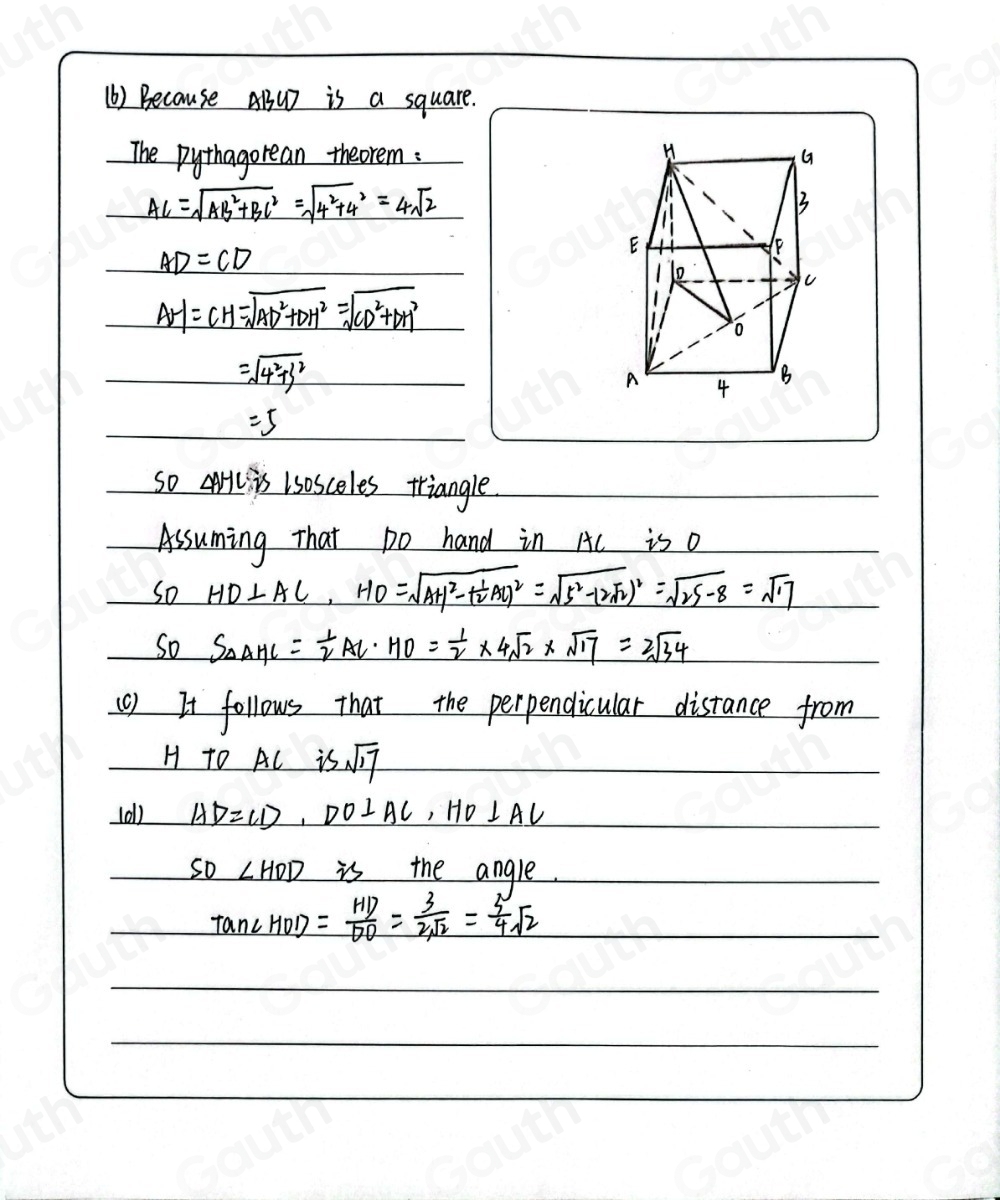 (b) Because ABCD is a square.
The Pythagorean theorem:
AC=√AB²+BC² =√4²+4² = 4√2
AD = CD
AH = CH=√AD²+DH² =√CD²+DH²
=√4²+3²
= 5
SO △AHC is Isosceles triangle.
Assuming that DO hand in AC is O
SO HO⊥AC, HO =√AH²-(½AC)² = √5²-(2√2)² =√25-8 = √17
SO S△AHC = ½ AC · HO = ½ × 4√2 × √17 = 2√34
(c) It follows that the perpendicular distance from
H TO AC is √17
(d) AD=CD, DO⊥AC, HO⊥AC
SO ∠HOD is the angle.
Tan∠HOD = HD/DO = 3/2√2 = 3/4√2
H
G
3
E
F
D
C
O
A
4
B
Gauth